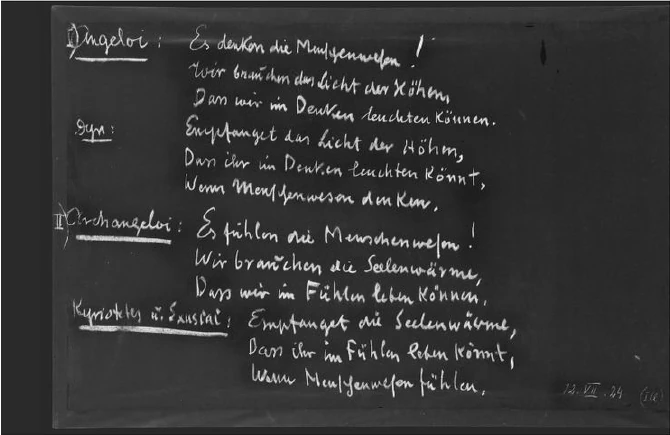 I) Angeloi: Es denken die Menschenwesen!
Wir brauchen das Licht der Höhen,
Dass wir im Denken leuchten können.
Dyn: Empfanget das Licht der Höhen,
Dass ihr im Denken leuchten könnt,
Wenn Menschenwesen denken.
II) Archangeloi: Es fühlen die Menschenwesen!
Wir brauchen die Seelenwärme,
Dass wir im Fühlen leben können.
Kyriotetes u. Exusiai: Empfanget die Seelenwärme,
Dass ihr im Fühlen leben könnt,
Wenn Menschenwesen fühlen.
22. VII. 24